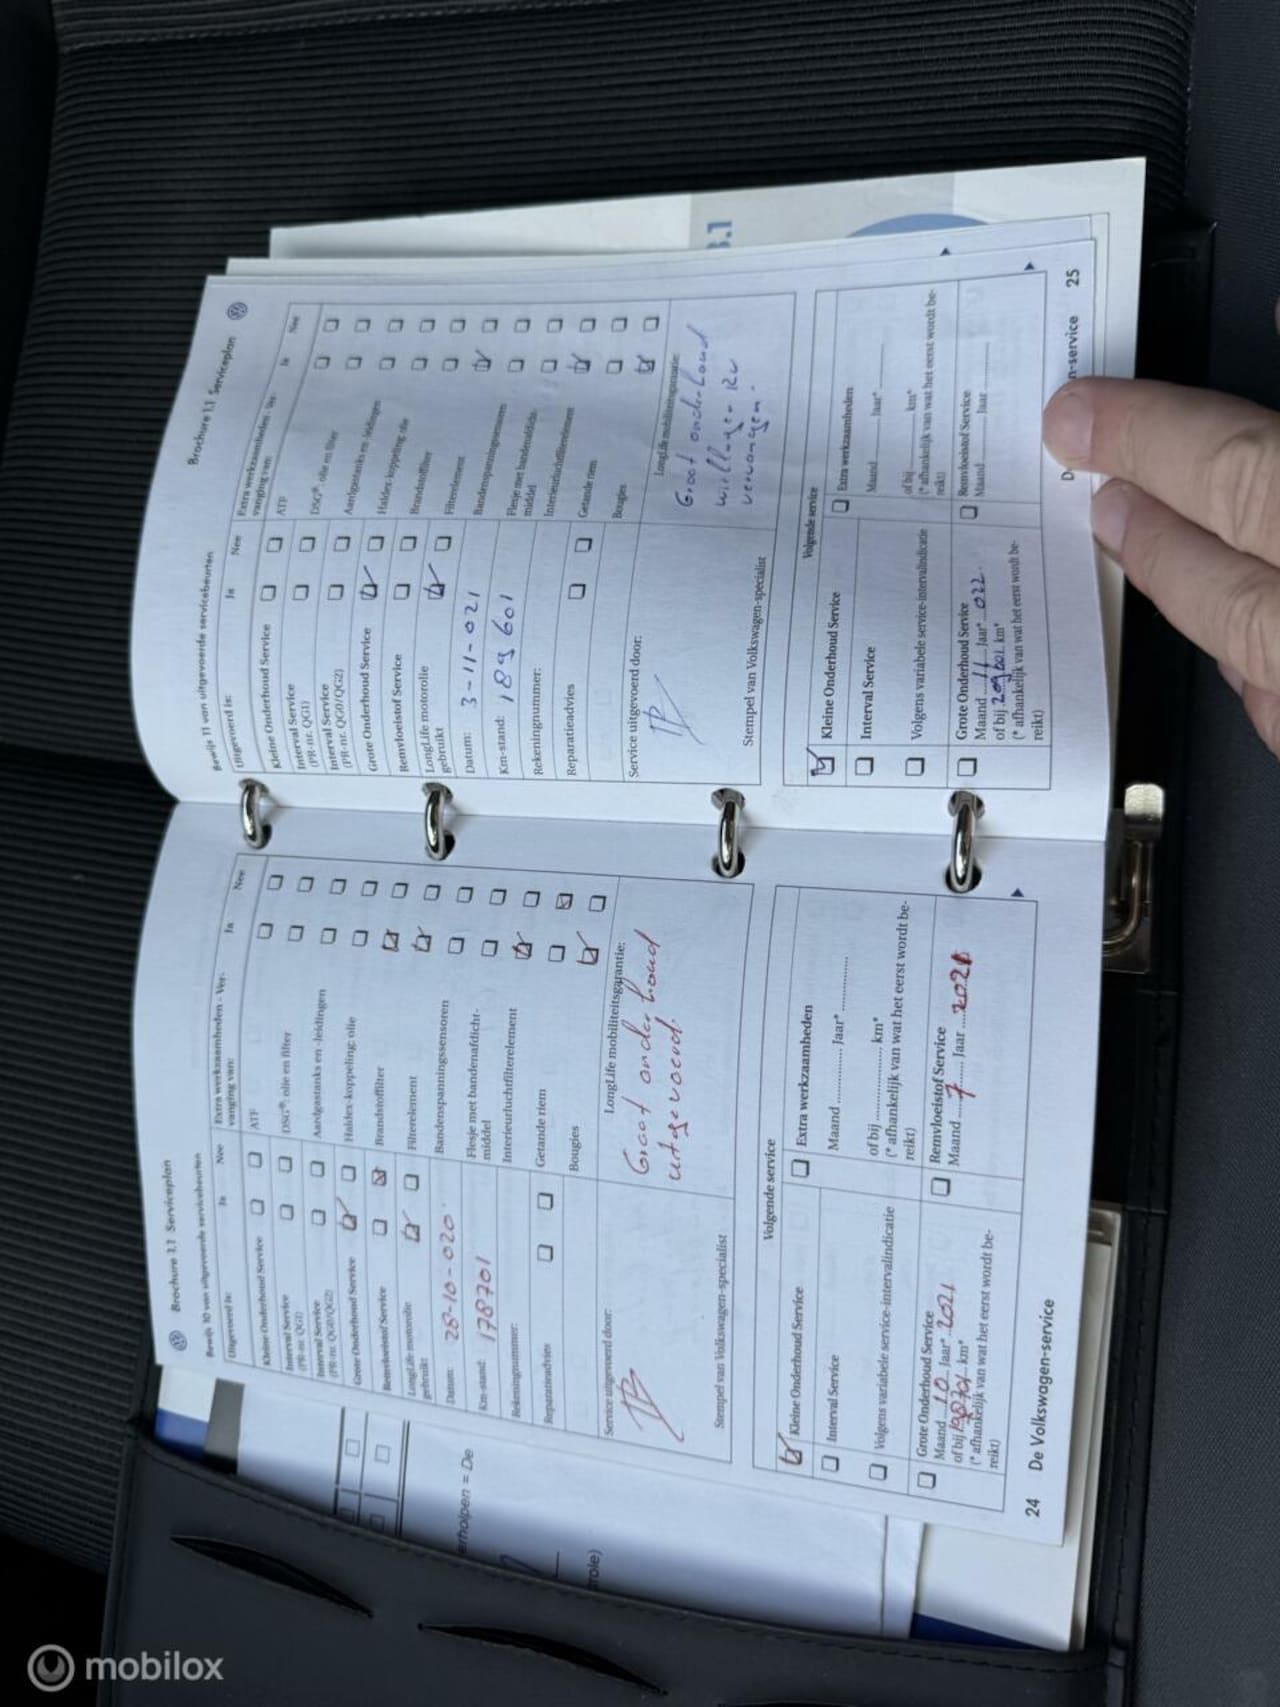 Brochure 1.1 Serviceplan
Bewijs 10 van uitgevoerde servicebeurten
Uitgevoerd is:
Ja
Nee
Kleine Onderhoud Service
Interval Service
(PR-nr. QG1)
Interval Service
(PR-nr. QG0/QG2)
Grote Onderhoud Service
Remvloeistof Service
LongLife motorolie
gebruikt
Datum: 28-10-020
Km-stand: 178701
Rekeningnummer:
Reparatieadvies
Extra werkzaamheden - Ver-
vanging van:
Ja
Nee
ATF
DSG®: olie en filter
Aardgastanks en -leidingen
Haldex-koppeling: olie
Brandstoffilter
Filterelement
Bandenspanningssensoren
Flesje met bandenafdicht-
middel
Interieurluchtfilterelement
Getande riem
Bougies
Service uitgevoerd door:
Stempel van Volkswagen-specialist
LongLife mobiliteitsgarantie:
Groot onderhoud
uitgevoerd.
Volgende service
Kleine Onderhoud Service
Interval Service
Volgens variabele service-intervalindicatie
Grote Onderhoud Service
Maand 10 Jaar* 2021
of bij 198701 km*
(* afhankelijk van wat het eerst wordt be-
reikt)
Extra werkzaamheden
Maand ............ Jaar* ............
of bij ............ km*
(* afhankelijk van wat het eerst wordt be-
reikt)
Remvloeistof Service
Maand 7 Jaar 2021
24 De Volkswagen-service
Brochure 1.1 Serviceplan
Bewijs 11 van uitgevoerde servicebeurten
Uitgevoerd is:
Ja
Nee
Kleine Onderhoud Service
Interval Service
(PR-nr. QG1)
Interval Service
(PR-nr. QG0/QG2)
Grote Onderhoud Service
Remvloeistof Service
LongLife motorolie
gebruikt
Datum: 3-11-021
Km-stand: 189601
Rekeningnummer:
Reparatieadvies
Extra werkzaamheden - Ver-
vanging van:
Ja
Nee
ATF
DSG®: olie en filter
Aardgastanks en -leidingen
Haldex-koppeling: olie
Brandstoffilter
Filterelement
Bandenspanningssensoren
Flesje met bandenafdicht-
middel
Interieurluchtfilterelement
Getande riem
Bougies
Service uitgevoerd door:
Stempel van Volkswagen-specialist
LongLife mobiliteitsgarantie:
Groot onderhoud
wiellager RV
vervangen.
Volgende service
Kleine Onderhoud Service
Interval Service
Volgens variabele service-intervalindicatie
Grote Onderhoud Service
Maand 11 Jaar* 022
of bij 209601 km*
(* afhankelijk van wat het eerst wordt be-
reikt)
Extra werkzaamheden
Maand ............ Jaar* ............
of bij ............ km*
(* afhankelijk van wat het eerst wordt be-
reikt)
Remvloeistof Service
Maand ............ Jaar ............
D
n-service 25
3.1
erholpen = De
role)
mobilox